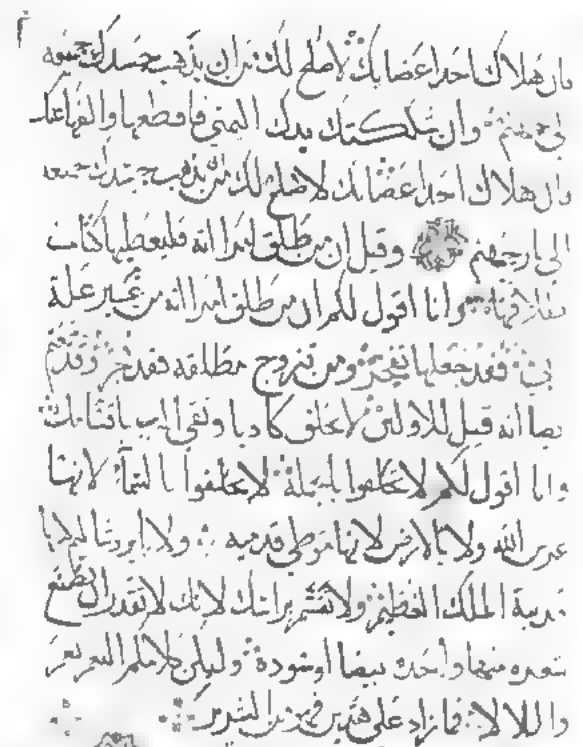 فان هلاك احد اعضايك لاصلح لك من ان يذهب جسدك جميعه
في جهنم وان شككتك يدك اليمنى فاقطعها والقها عنك
وان هلاك احد اعضايك لاصلح لك من ان يذهب جسدك جميعه
الى نار جهنم وقيل ان من طلق امرااته فليعطيها كتاب
وانا اقول لكم ان من طلق امرااته من غير علة
فقد جعلها تفجر ومن تزوج مطلقه فقد فجر وقد
ايضا انه قيل للاولين لا تحلف كاذبا وتفي الرب باقسامك
وانا اقول لكم لا تحلفوا بالجملة لا تحلفوا بالسماء لانها
عرش الله ولا بالارض لانها موطى قدميه ولا بايروشاليم لانها
مدينة الملك العظيم ولا تقسم براسك لانك لا تقدر ان تصنع
شعره منها واحده بيضا او سودة وليكن كلامكم النعم نعم
واللا لا فما زاد على هذين فهو من الشرير